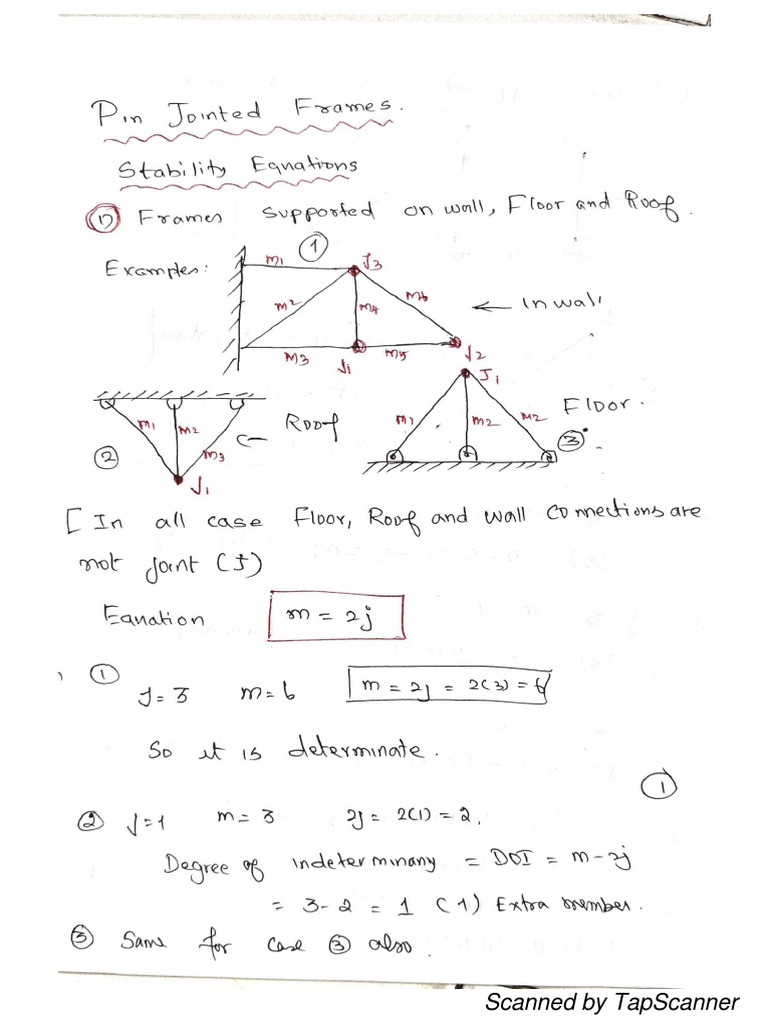 Pin Jointed Frames.
Stability Equations
1) Frames supported on wall, Floor and Roof.
Examples:
1
m1
J3
m2
m4
m6
← In wall
m3
J1
m5
J2
J1
m1
m2
m3
← Roof
2
J1
m1
m2
m2
Floor.
3
[In all case Floor, Roof and wall connections are
not joint (J)
Equation m = 2j
1
J=3 m=6 m = 2j = 2(3) = 6
So it is determinate.
1
2 J=1 m=3 2j = 2(1) = 2.
Degree of indeterminany = DOI = m-2j
= 3-2 = 1 (1) Extra member.
3 Same for case 3 also.
Scanned by TapScanner